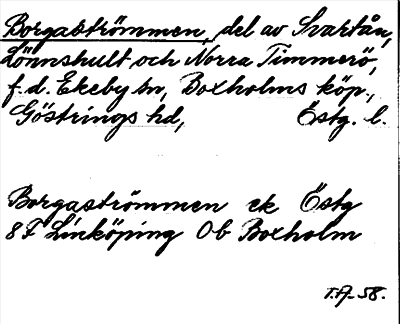 Borgaströmmen, del av Svartån,
Lönnshult och Norra Timmerö,
f.d. Ekeby sn, Boxholms köp.,
Göstrings hd, Östg. l.
Borgaströmmen ek Östg
8F Linköping 0b Boxholm
T.A-58.